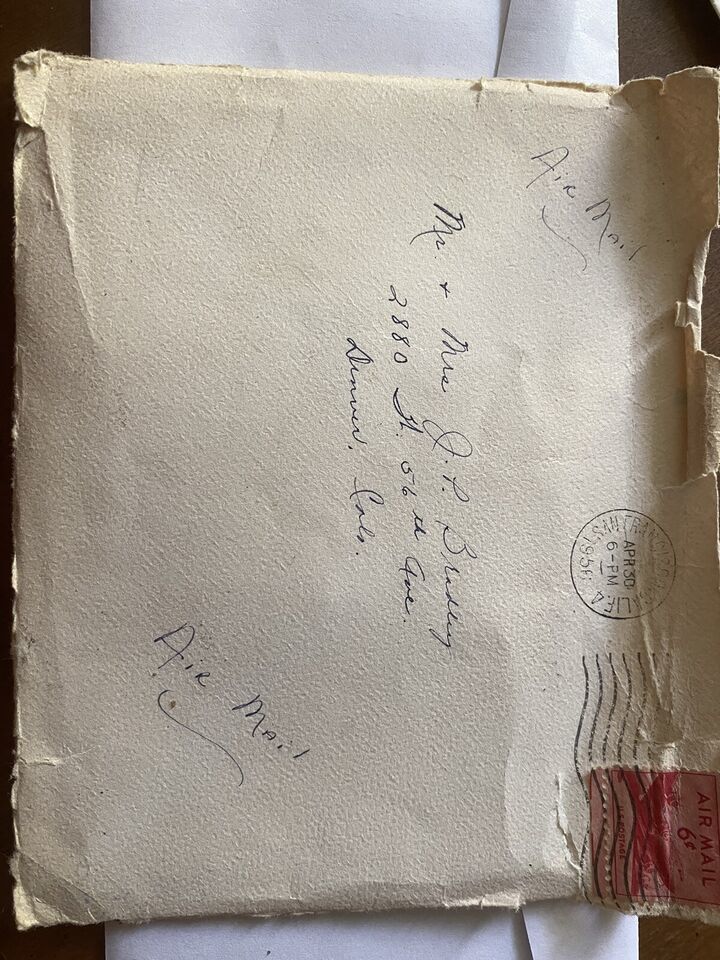 Air Mail
SAN FRANCISCO
APR 30
6-PM
195
CALIF.
AIR MAIL
6¢
U.S. POSTAGE
Mr. + Mrs J. P. Bradley
2880 W. 56th Ave.
Denver, Colo.
Air Mail